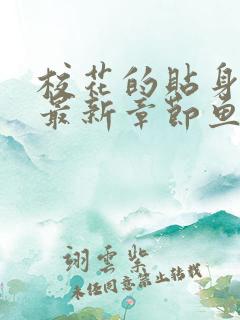 校花的贴身
最新章节鱼
翊云紫
未经同意禁止转载